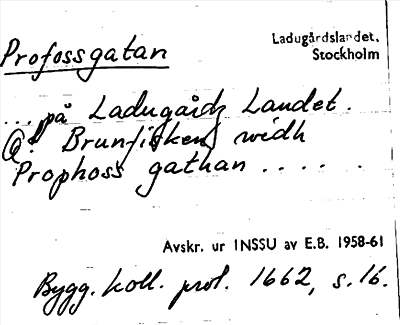 Profossgatan
Ladugårdslandet.
Stockholm
... på Ladugårdz Landet.
Brunfisken widh
Prophoss gathan .....
Avskr. ur INSSU av E.B. 1958-61
Bygg. koll. prot. 1662, s. 16.